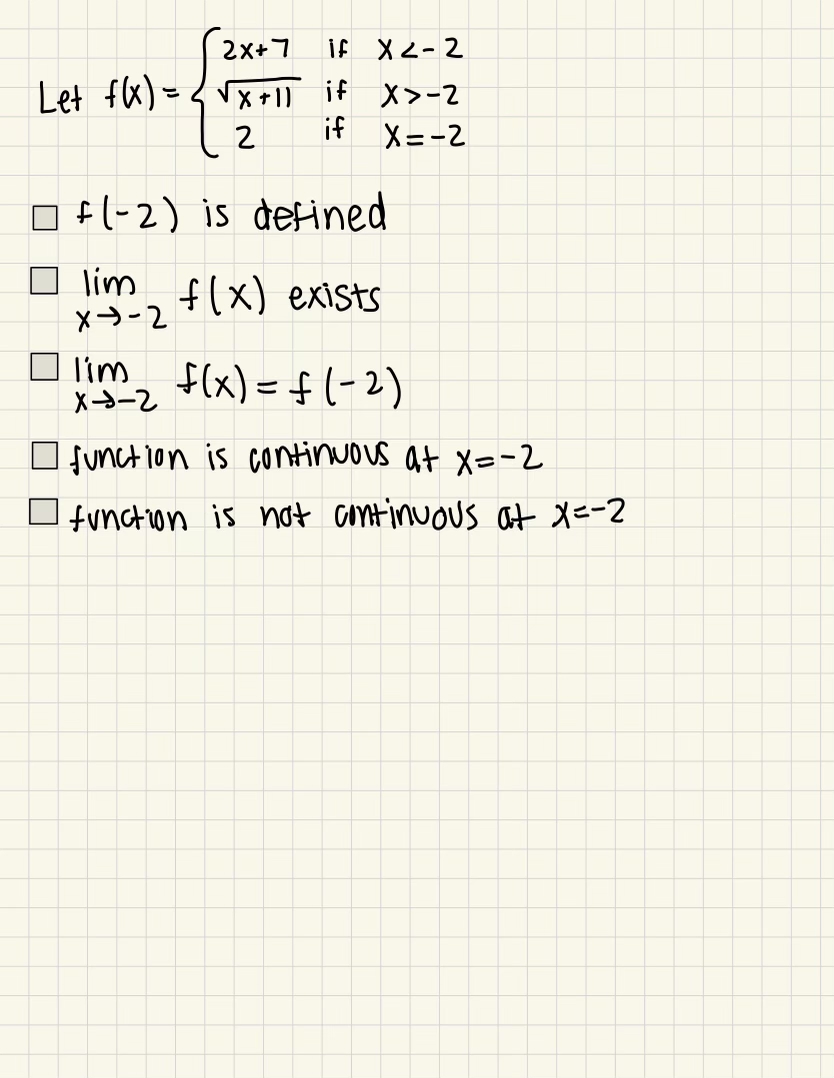 Let f(x) = { 2x+7 if x < -2
√(x+11) if x > -2
2 if x = -2
f(-2) is defined
lim x→-2 f(x) exists
lim x→-2 f(x) = f(-2)
function is continuous at x=-2
function is not continuous at x=-2